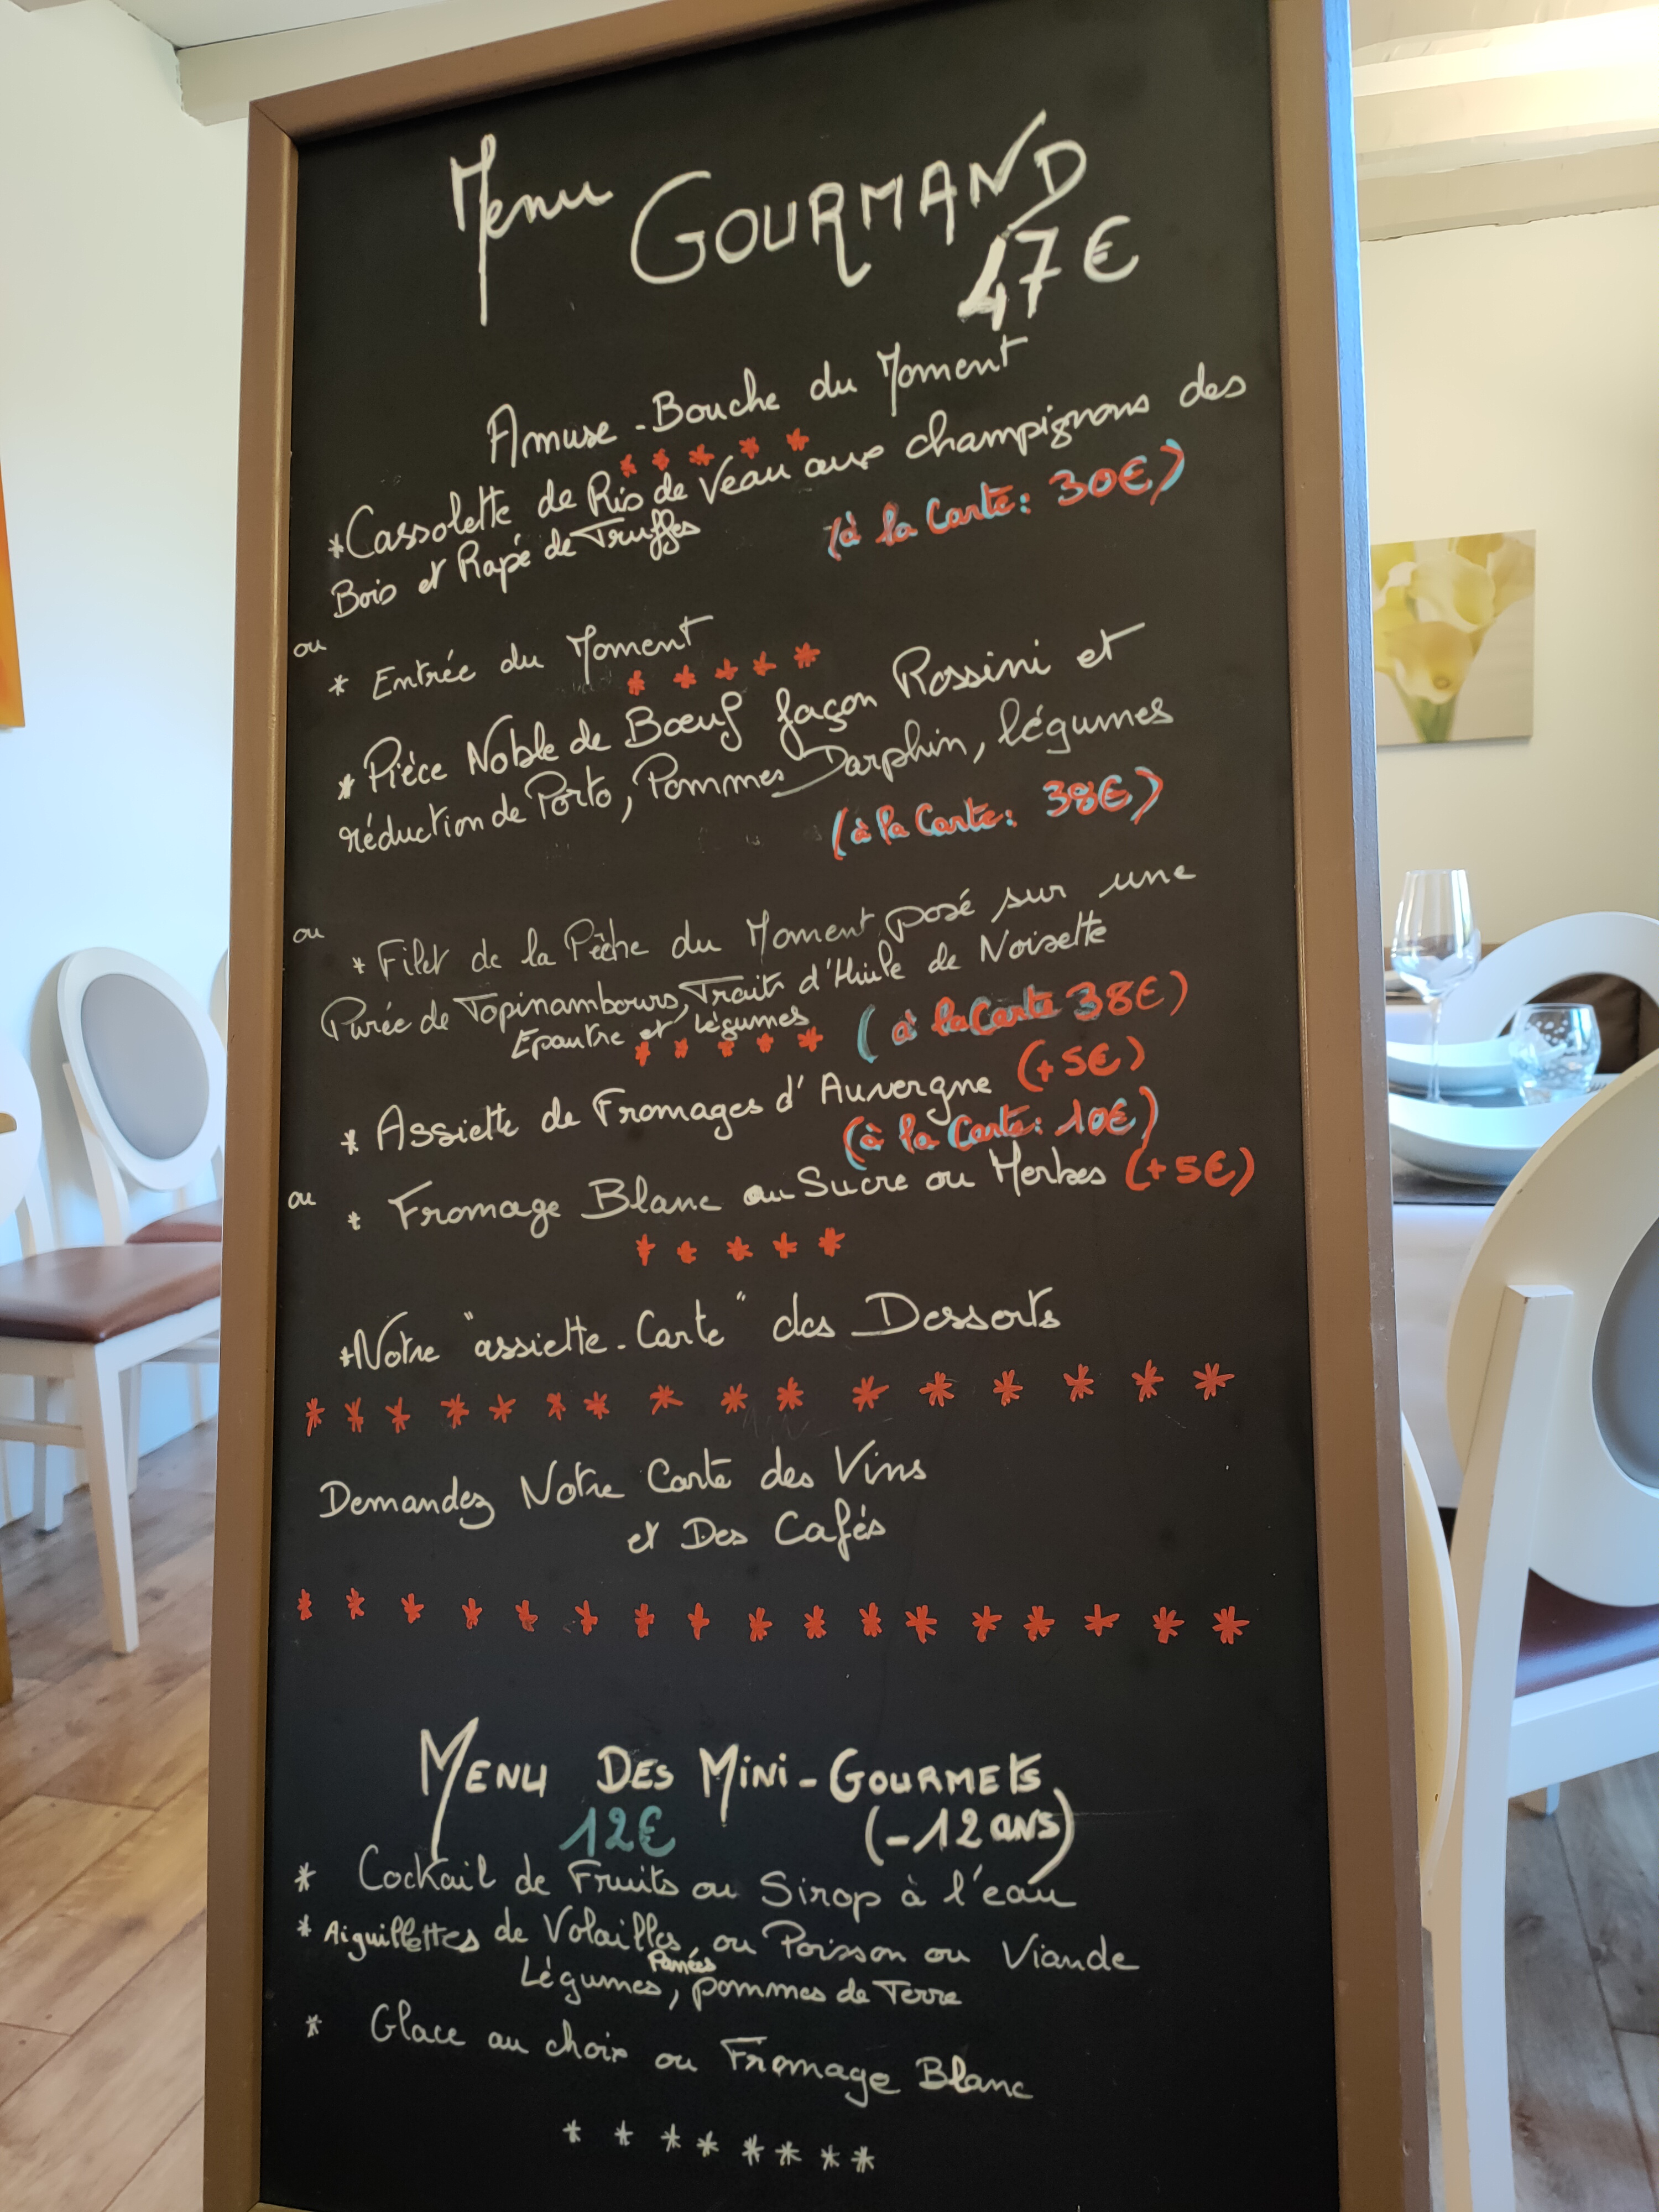 Menu GOURMAND
47€
Amuse-Bouche du Moment
* * * * *
*Cassolette de Ris de Veau aux champignons des
Bois et Rapé de Truffes (à la Carte: 30€)
ou
* Entrée du Moment
* * * * *
* Pièce Noble de Bœuf façon Rossini et
réduction de Porto, Pommes Darphin, légumes
(à la Carte: 38€)
ou
* Filet de la Pêche du Moment posé sur une
Purée de Topinambours, Trait d'Huile de Noisette
Epautre et légumes (à la Carte 38€)
* * * * *
* Assiette de Fromages d'Auvergne (+5€)
(à la Carte: 10€)
ou
* Fromage Blanc au Sucre ou Herbes (+5€)
* * * * *
*Notre "assiette-Carte" des Desserts
* * * * * * * * * * * * * * * *
Demandez Notre Carte des Vins
et Des Cafés
* * * * * * * * * * * * * * * * *
MENU DES MiNi-GOURMETS
12€ (-12 ans)
* Cocktail de Fruits ou Sirop à l'eau
* Aiguillettes de Volailles ou Poisson ou Viande
Panées
Légumes, pommes de Terre
* Glace au choix ou Fromage Blanc
* * * * * * * *